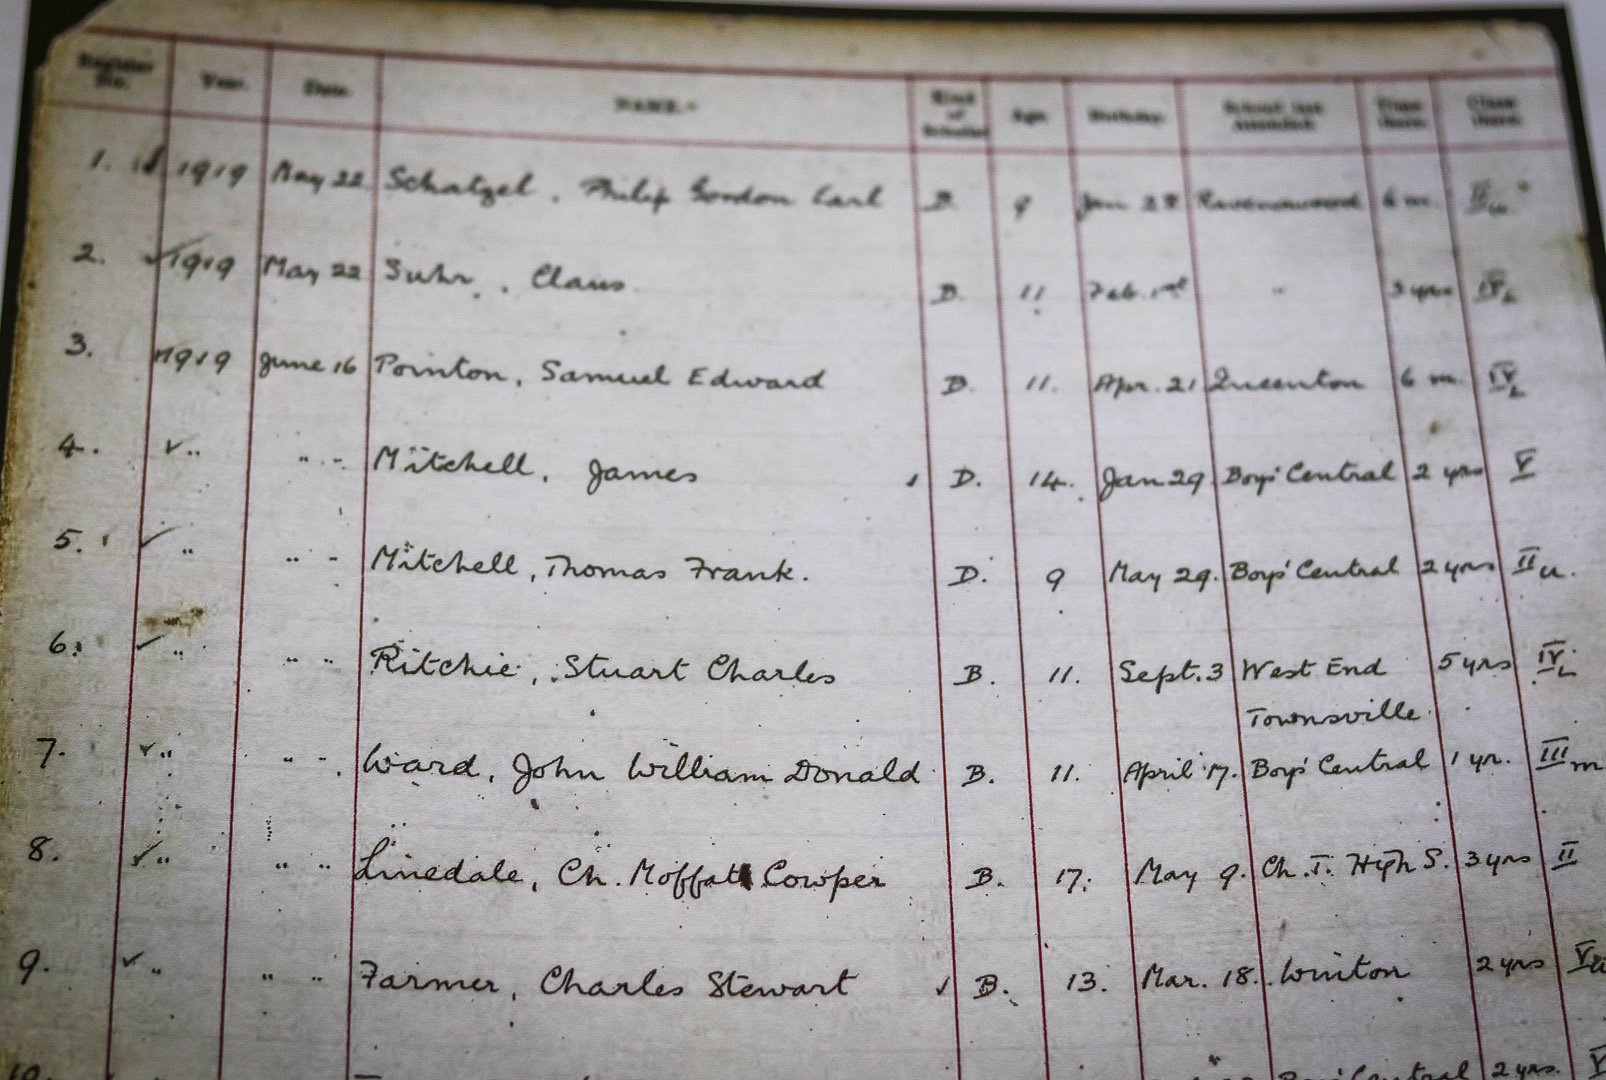 Register No. Year. Date. NAME. Kind of Scholar Age. Birthday. School last attended. Time there. Class there.
1. 1919 May 22 Schatzel, Philip Gordon Earl B. 9 Jan 28 Ravenswood 6 m. II u.
2. 1919 May 22 Suhr, Claus. B. 11 Feb. 1st " 3 yrs IV L
3. 1919 June 16 Pointon, Samuel Edward B. 11. Apr. 21 Queenton 6 m. IV L
4. " " " Mitchell, James D. 14. Jan 29 Boys' Central 2 yrs V
5. " " " Mitchell, Thomas Frank. D. 9 May 29. Boys' Central 2 yrs II u.
6. " " " Ritchie, Stuart Charles B. 11. Sept. 3 West End 5 yrs IV L
Townsville
7. " " " Ward, John William Donald B. 11. April 17. Boys' Central 1 yr. III m
8. " " " Linedale, Ch. Moffat Cowper B. 17. May 9. Ch. T. High S. 3 yrs II
9. " " " Farmer, Charles Stewart B. 13. Mar. 18. Winton 2 yrs V u
10. Boys' Central 2 yrs. V